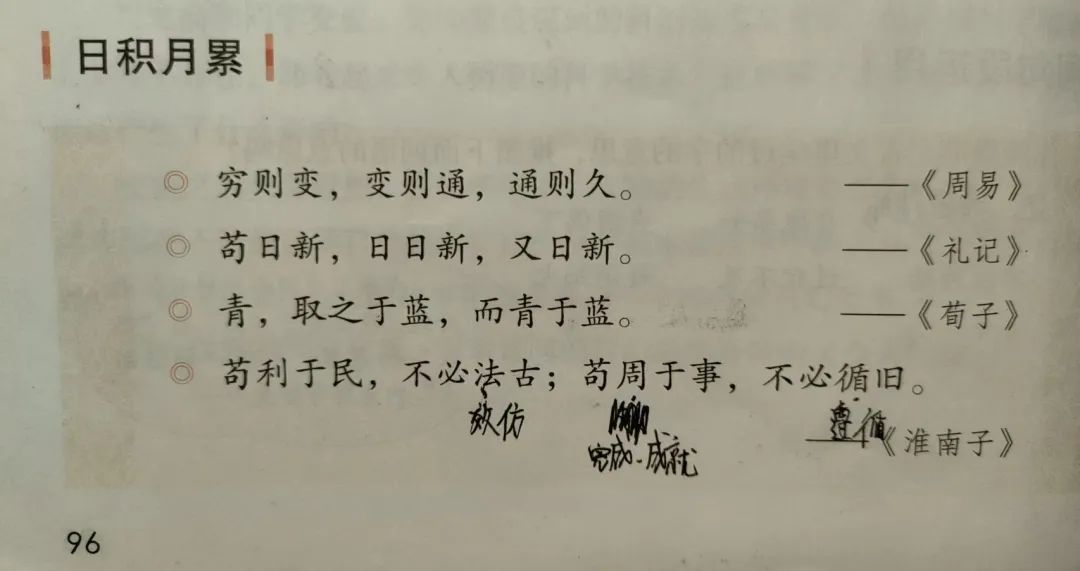 日积月累
◎ 穷则变，变则通，通则久。 ——《周易》
◎ 苟日新，日日新，又日新。 ——《礼记》
◎ 青，取之于蓝，而青于蓝。 ——《荀子》
◎ 苟利于民，不必法古；苟周于事，不必循旧。
效仿 遵循
完成、成就
——《淮南子》
96